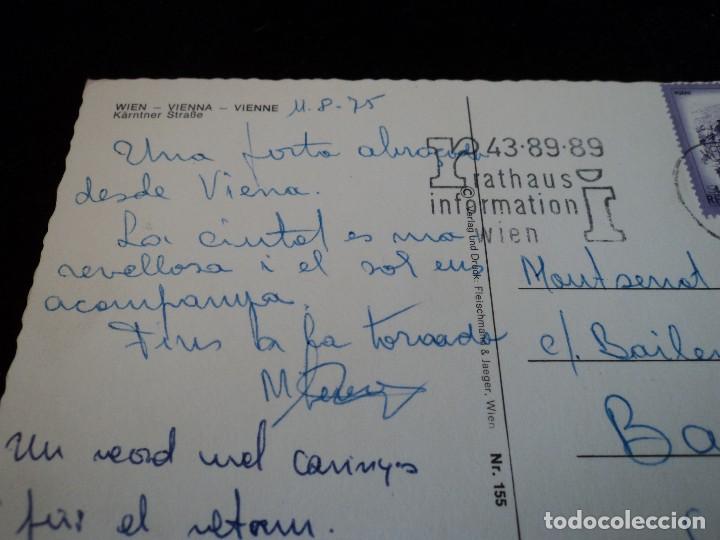 WIEN – VIENNA – VIENNE 11-8-75
Kärntner Straße
Una forta abraçada
desde Viena.
La ciutat es ma-
ravellosa i el sol ens
acompanya.
Fins la tornada
M
Un record molt carinyos
i fins el retorn.
43·89·89
rathaus
information
wien
© Verlag und Druck: Fleischmann & Jaeger, Wien
Nr. 155
Montserrat
c/. Bailen
Ba
todocoleccion
todocoleccion.net